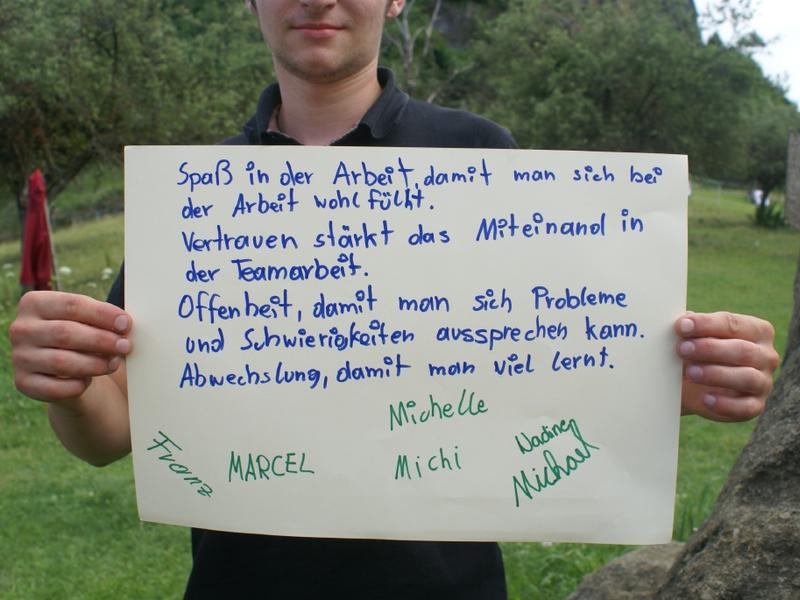 Spaß in der Arbeit, damit man sich bei
der Arbeit wohl fühlt.
Vertrauen stärkt das Miteinand in
der Teamarbeit.
Offenheit, damit man sich Probleme
und Schwierigkeiten aussprechen kann.
Abwechslung, damit man viel lernt.
Michelle
Franz MARCEL Michi Nadine
Michael